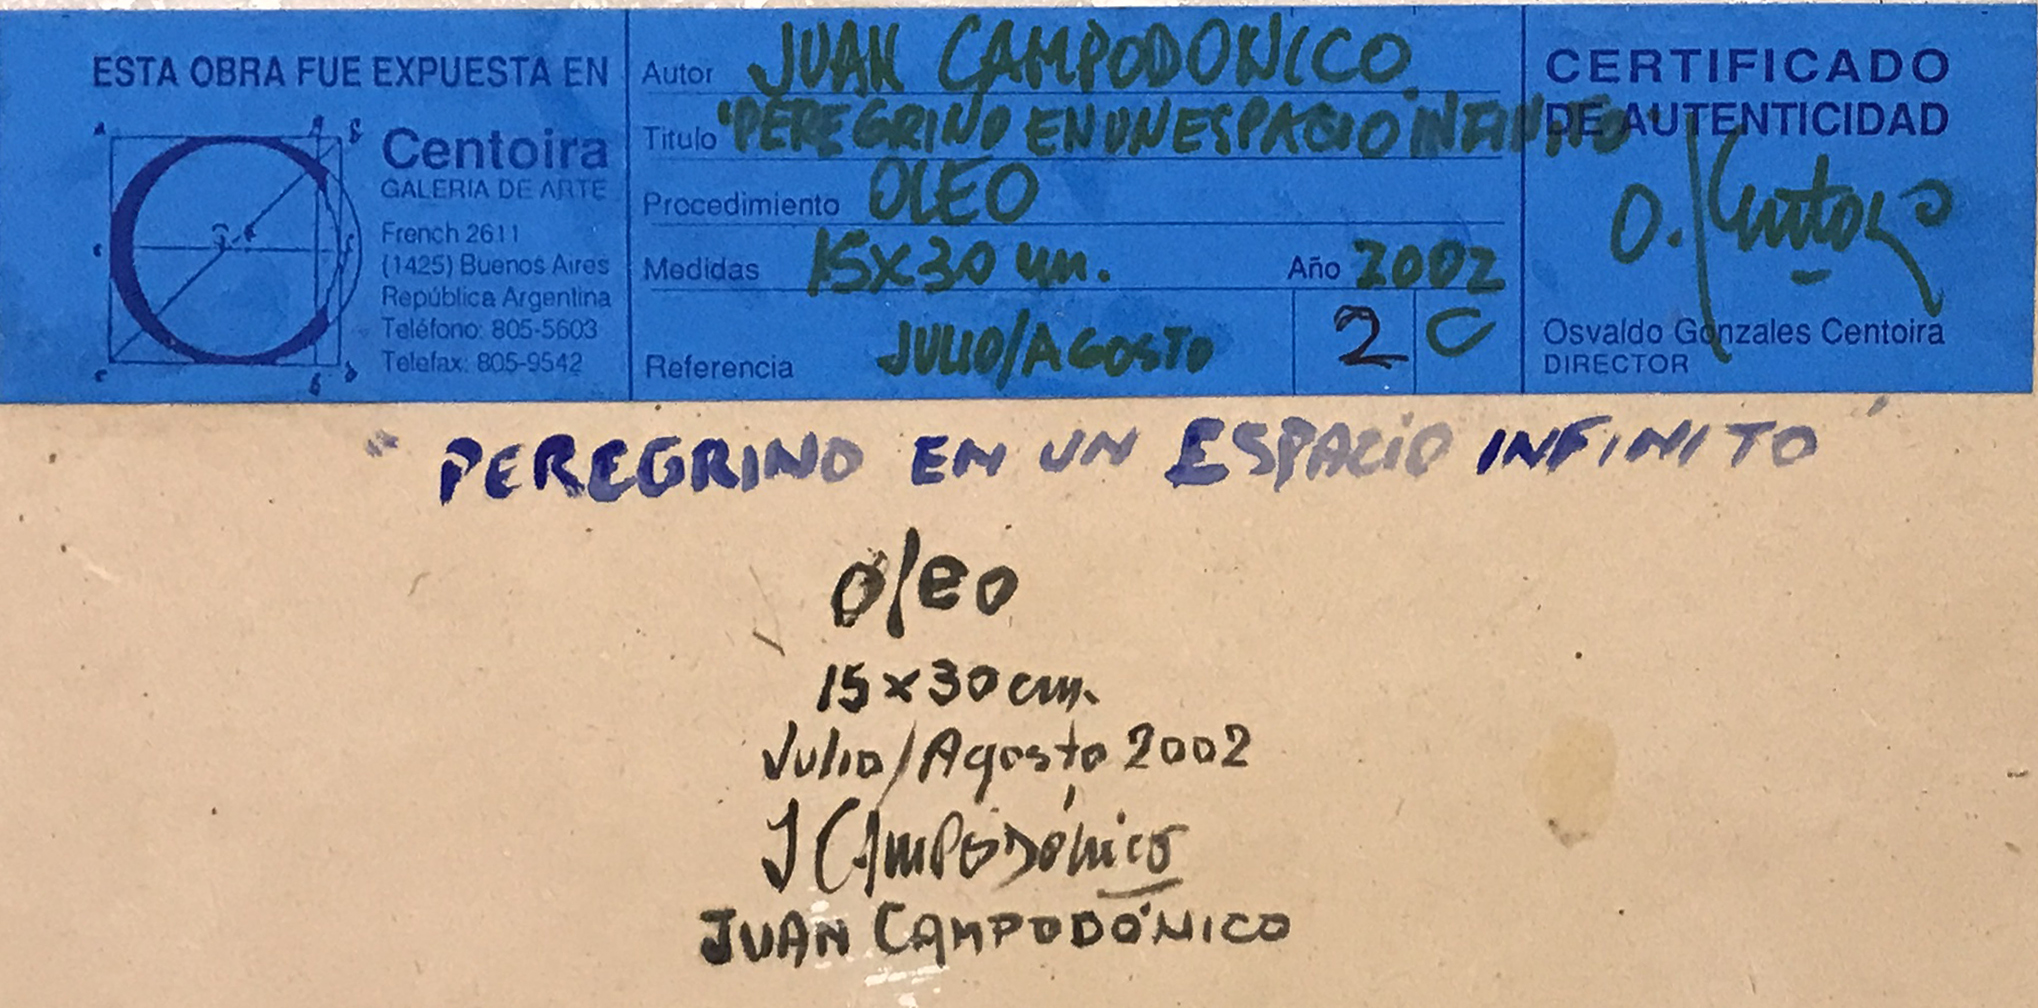 ESTA OBRA FUE EXPUESTA EN
Centoira
GALERIA DE ARTE
French 2611
(1425) Buenos Aires
República Argentina
Teléfono: 805-5603
Telefax: 805-9542
Autor JUAN CAMPODONICO
Titulo "PEREGRINO EN UN ESPACIO INFINITO"
Procedimiento OLEO
Medidas 15x30 cm. Año 2002
Referencia JULIO/AGOSTO 2 C
CERTIFICADO
DE AUTENTICIDAD
Osvaldo Gonzales Centoira
DIRECTOR
"PEREGRINO EN UN ESPACIO INFINITO"
óleo
15x30 cm.
Julio/Agosto 2002
J CAmPoDónico
JUAN CAMPODÓNICO